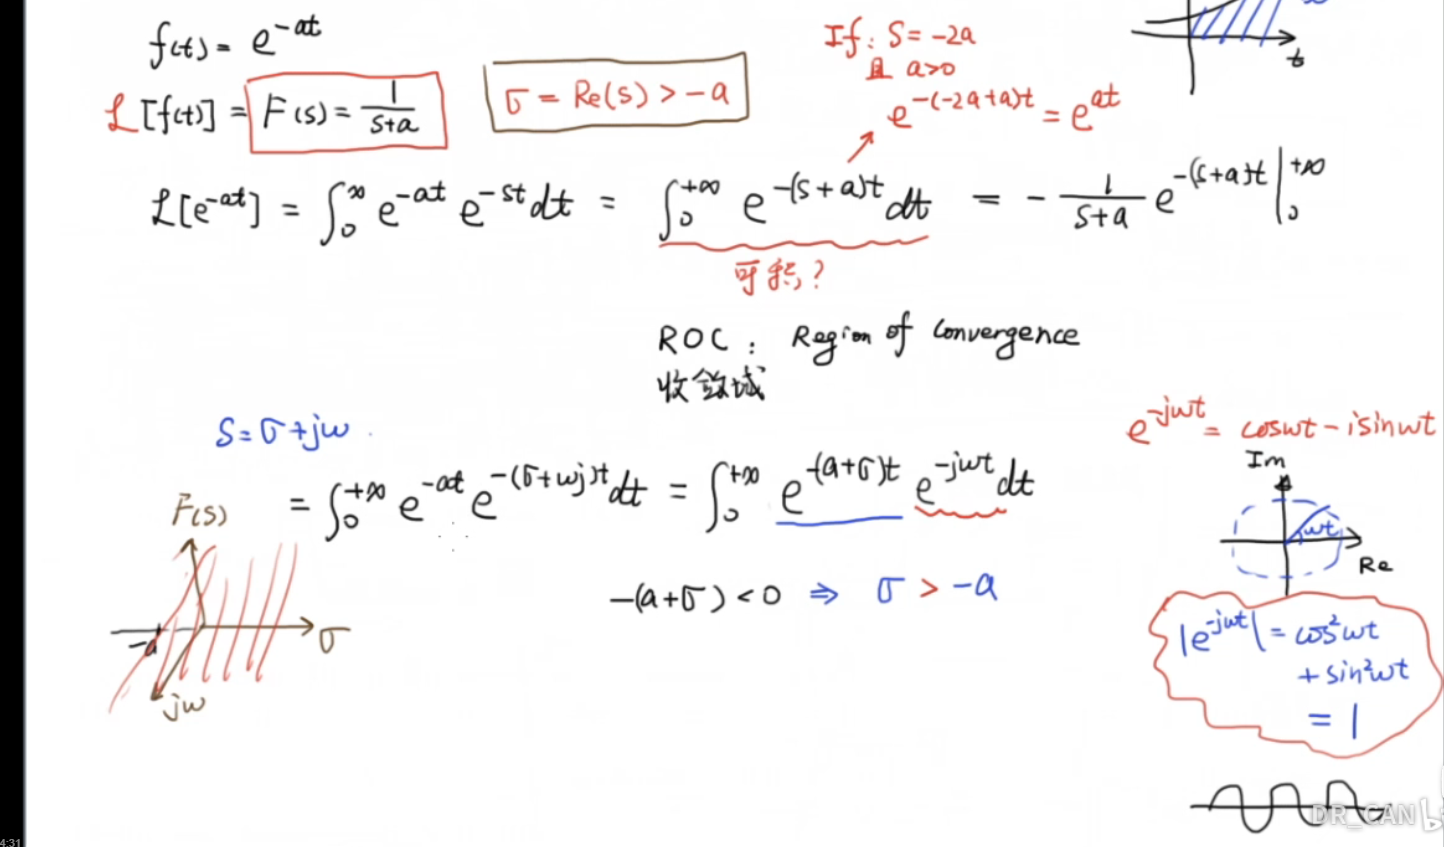 f(t) = e^{-at}
If: S = -2a
且 a>0
t
ℒ[f(t)] = F(s) = 1/(s+a)
σ = Re(s) > -a
e^{-(-2a+a)t} = e^{at}
ℒ[e^{-at}] = ∫_0^∞ e^{-at} e^{-st} dt = ∫_0^{+∞} e^{-(s+a)t} dt = - 1/(s+a) e^{-(s+a)t} |_0^{+∞}
可积?
ROC: Region of Convergence
收敛域
S = σ + jω
e^{-jωt} = cosωt - isinωt
= ∫_0^{+∞} e^{-at} e^{-(σ+ωj)t} dt = ∫_0^{+∞} e^{-(a+σ)t} e^{-jωt} dt
-(a+σ) < 0 ⇒ σ > -a
F(s)
-a
σ
jω
Im
ωt
Re
|e^{-jωt}| = cos²ωt
+ sin²ωt
= 1
DR_CAN
4:31